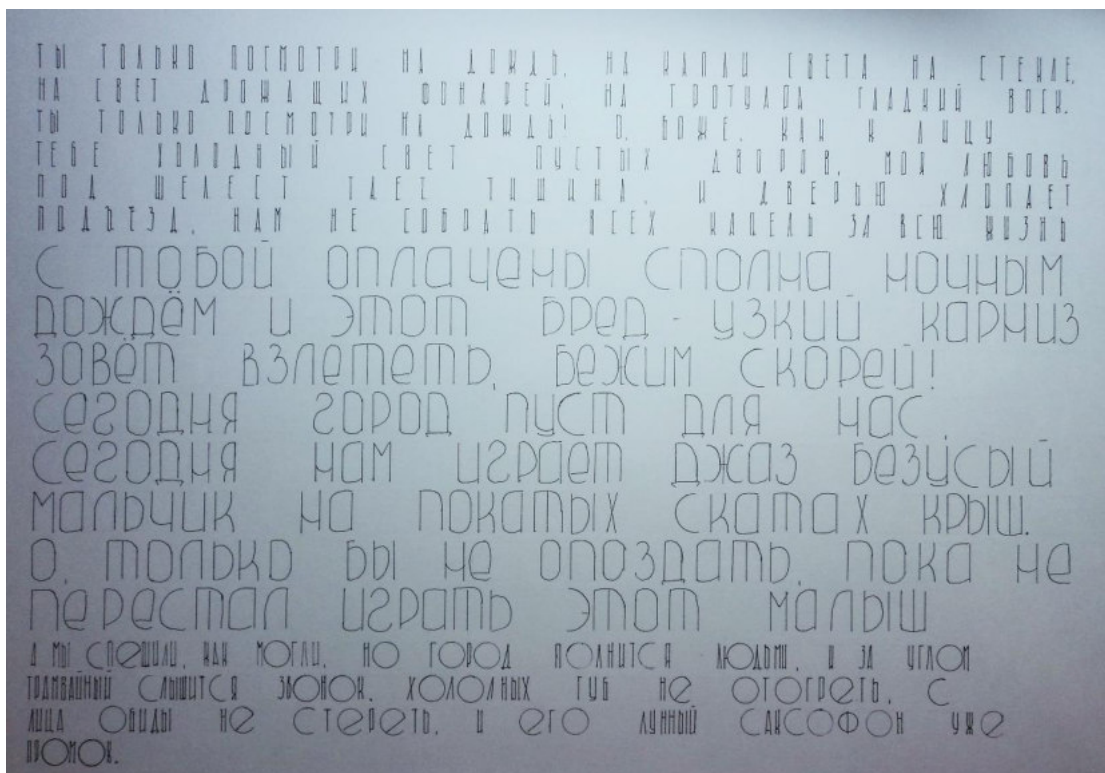 ТЫ ТОЛЬКО ПОСМОТРИ НА ДОЖДЬ, НА КАПЛИ СВЕТА НА СТЕКЛЕ,
НА СВЕТ ДРОЖАЩИХ ФОНАРЕЙ, НА ТРОТУАРА ГЛАДКИЙ ВОСК.
ТЫ ТОЛЬКО ПОСМОТРИ НА ДОЖДЬ! О, БОЖЕ, КАК К ЛИЦУ
ТЕБЕ ХОЛОДНЫЙ СВЕТ ПУСТЫХ ДВОРОВ, МОЯ ЛЮБОВЬ
ПОД ШЕЛЕСТ ТАЕТ ТИШИНА, И ДВЕРЬЮ ХЛОПАЕТ
ПОДЪЕЗД, НАМ НЕ СОБРАТЬ ВСЕХ КАПЕЛЬ ЗА ВСЮ ЖИЗНЬ
С ТОБОЙ ОПЛАЧЕНЫ СПОЛНА НОЧНЫМ
ДОЖДЁМ И ЭТОТ БРЕД - УЗКИЙ КАРНИЗ
ЗОВЁТ ВЗЛЕТЕТЬ, БЕЖИМ СКОРЕЙ!
СЕГОДНЯ ГОРОД ПУСТ ДЛЯ НАС,
СЕГОДНЯ НАМ ИГРАЕТ ДЖАЗ БЕЗУСЫЙ
МАЛЬЧИК НА ПОКАТЫХ СКАТАХ КРЫШ.
О, ТОЛЬКО БЫ НЕ ОПОЗДАТЬ, ПОКА НЕ
ПЕРЕСТАЛ ИГРАТЬ ЭТОТ МАЛЫШ
А МЫ СПЕШИЛИ, КАК МОГЛИ, НО ГОРОД ПОЛНИТСЯ ЛЮДЬМИ, И ЗА УГЛОМ
ТРАМВАЙНЫЙ СЛЫШИТСЯ ЗВОНОК. ХОЛОДНЫХ ГУБ НЕ ОТОГРЕТЬ, С
ЛИЦА ОБИДЫ НЕ СТЕРЕТЬ, И ЕГО ЛУННЫЙ САКСОФОН УЖЕ
ПРОМОК.